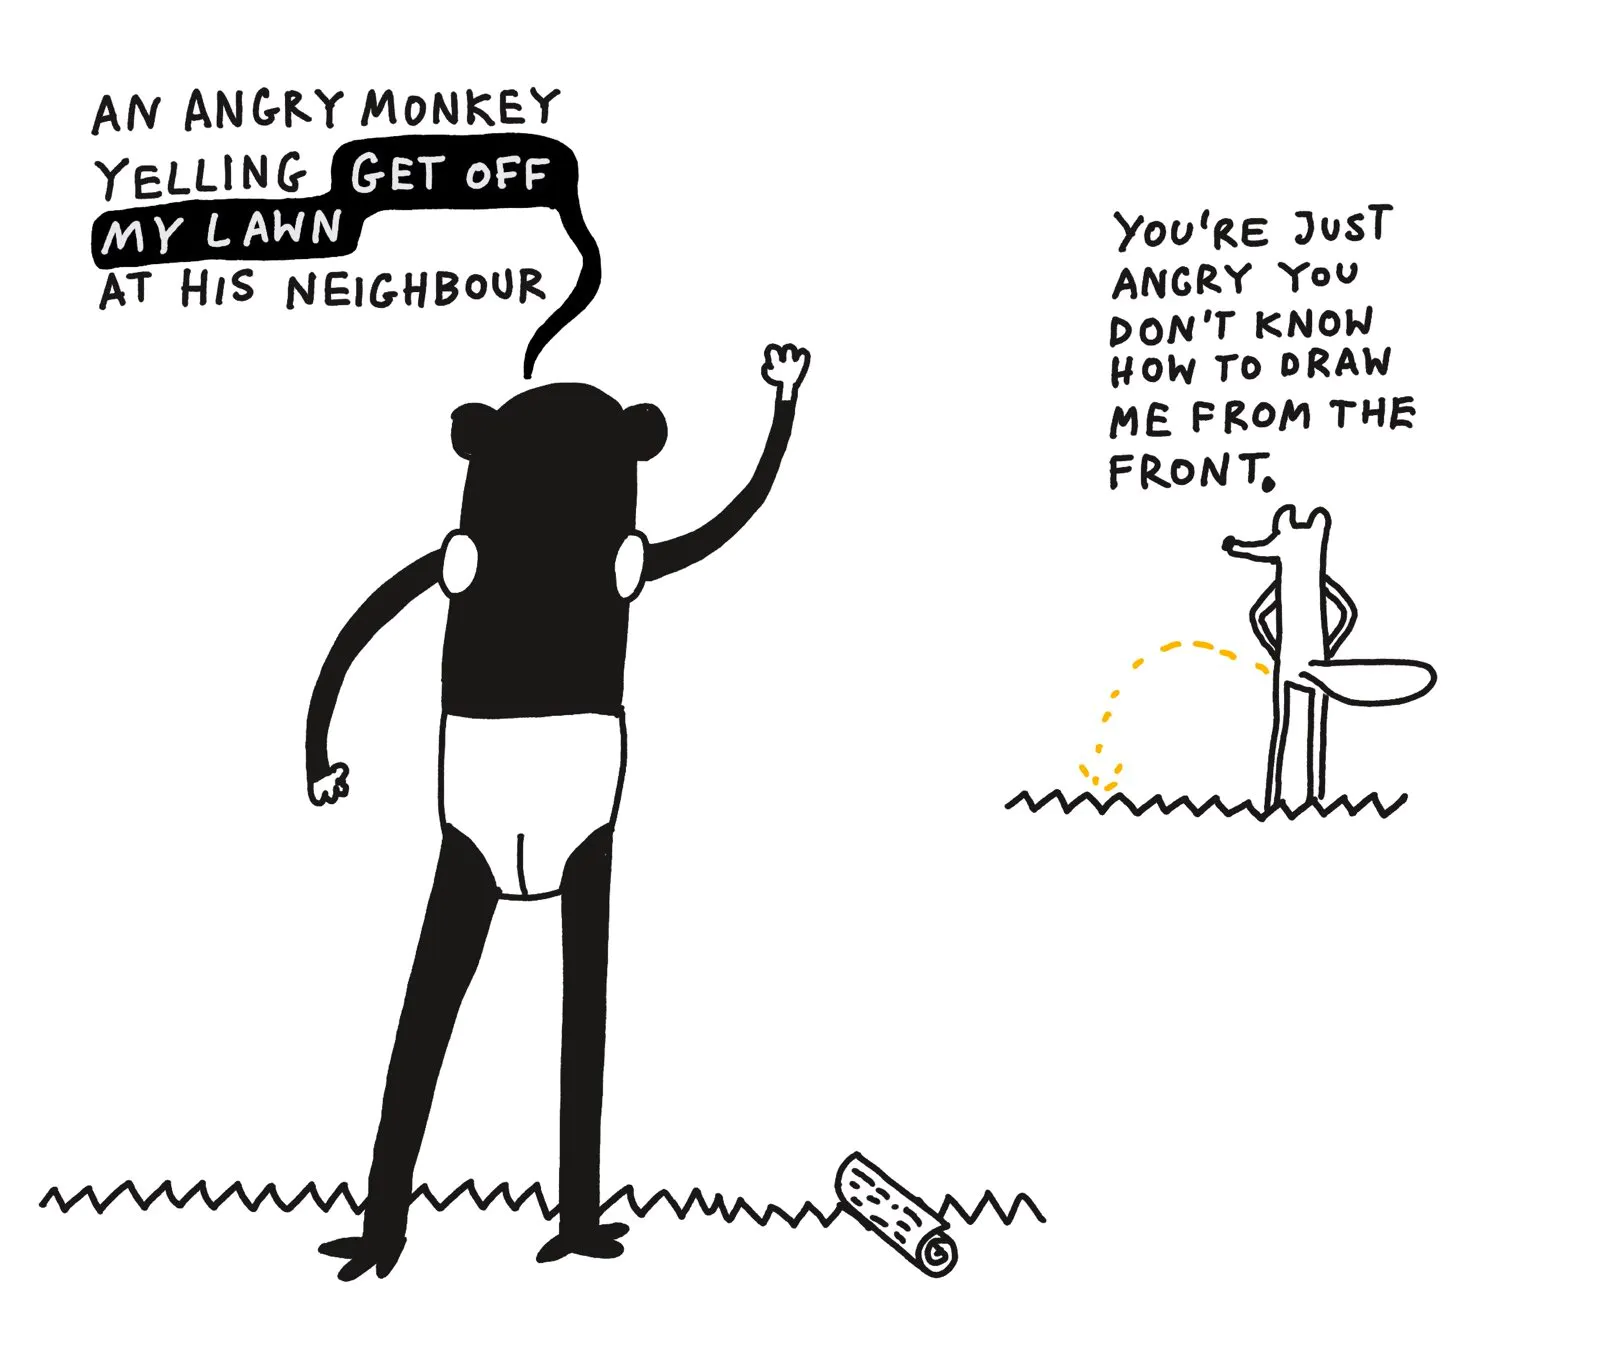 AN ANGRY MONKEY
YELLING GET OFF
MY LAWN
AT HIS NEIGHBOUR
YOU'RE JUST
ANGRY YOU
DON'T KNOW
HOW TO DRAW
ME FROM THE
FRONT.